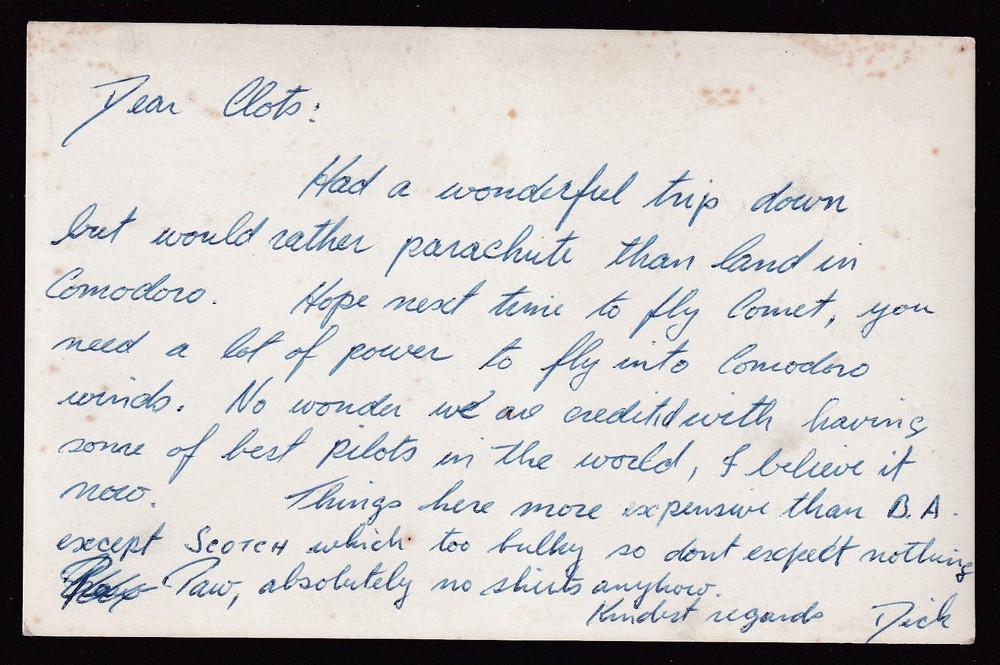 Dear Clots:
Had a wonderful trip down
but would rather parachute than land in
Comodoro. Hope next time to fly Comet, you
need a lot of power to fly into Comodoro
winds. No wonder we are credited with having
some of best pilots in the world, I believe it
now. Things here more expensive than B.A.
except SCOTCH which too bulky so dont expect nothing
Paw, absolutely no shirts anyhow.
Kindest regards Dick